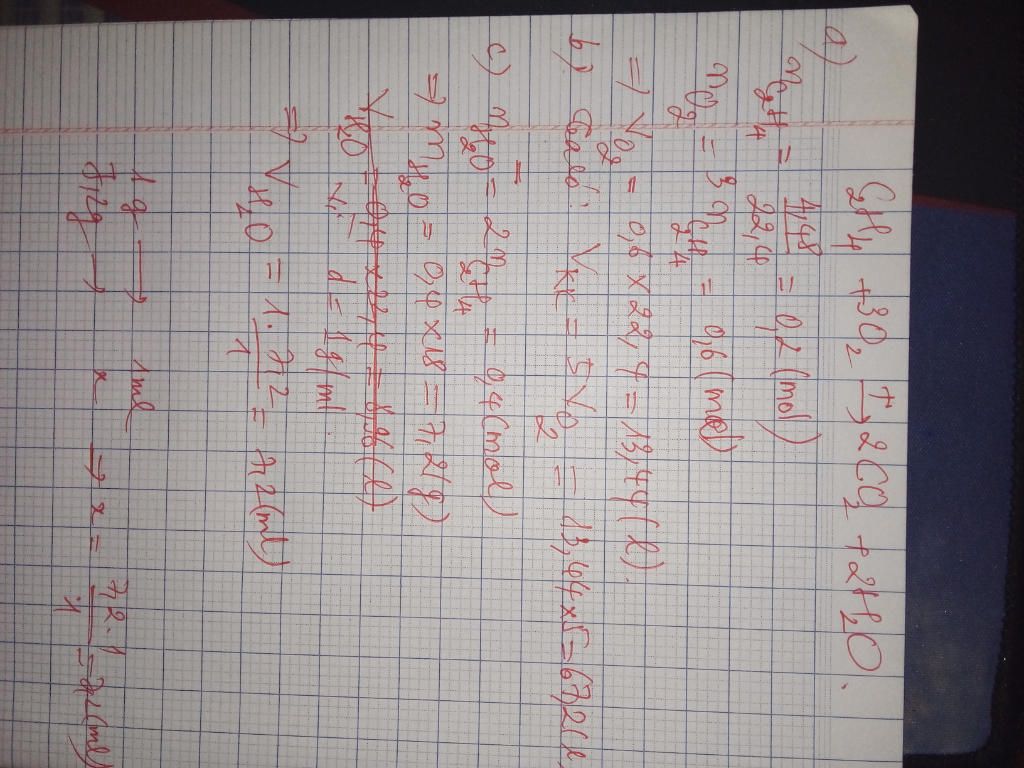 C2H4 + 3O2 T→ 2CO2 + 2H2O.
a) nC2H4 = 4,48/22,4 = 0,2 (mol)
nO2 = 3 nC2H4 = 0,6 (mol)
=> VO2 = 0,6 x 22,4 = 13,44 (l).
b) Vkk = 5VO2 = 13,44 x 5 = 67,2 (l
c) nH2O = 2nC2H4 = 0,4 (mol)
=> mH2O = 0,4 x 18 = 7,2 (g)
VH2O = 0,4 x 22,4 = 8,96 (l)
d = 1g/ml
=> VH2O = 1. 7,2/1 = 7,2 (ml)
1g → 1ml
7,2g → x → x = 7,2.1/1 = 7,2 (ml)